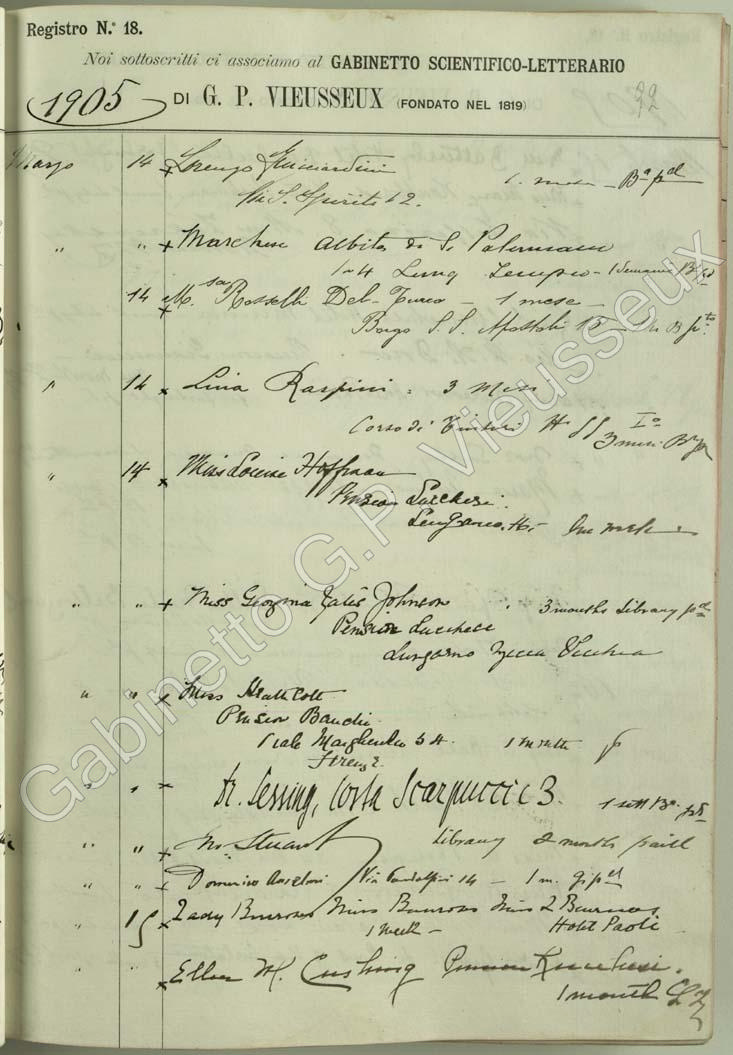 Registro N.° 18.
Noi sottoscritti ci associamo al GABINETTO SCIENTIFICO-LETTERARIO
1905 DI G. P. VIEUSSEUX (FONDATO NEL 1819) 92
Marzo 14 x Lorenzo Guicciardini
Via S. Spirito 12. 1. mese - Ba pd
" " + Marchesa
Lung
14 x M.sa Rosselli Del-Turco - 1 mese -
Borgo S.S. Apostoli 15
" 14 x Lina Raspini = 3 Mesi
Corso di Tintori
" 14 x Miss Louise Hoffman
Pension Lucchesi.
" " + Miss Georgina Yates Johnson 3 months Library pd
Pension Lucchesi
Lungarno Zecca Vecchia
" " x Miss Heathcott
Pension Bandini
Viale Margherita 34. 1 month
Firenze
" " + Dr. Lessing, Costa Scarpuccia 3.
" " + Stuart Library 2 months paid
" " + Domenico Via Pandolfini 14 - 1 m.
" 15 x Lady Burrows Miss Burrows Miss L Burrows
1 week - Hotel Paoli
" " x Ellen M. Cushing Pension Lucchesi.
1 month
Gabinetto G.P. Vieusseux